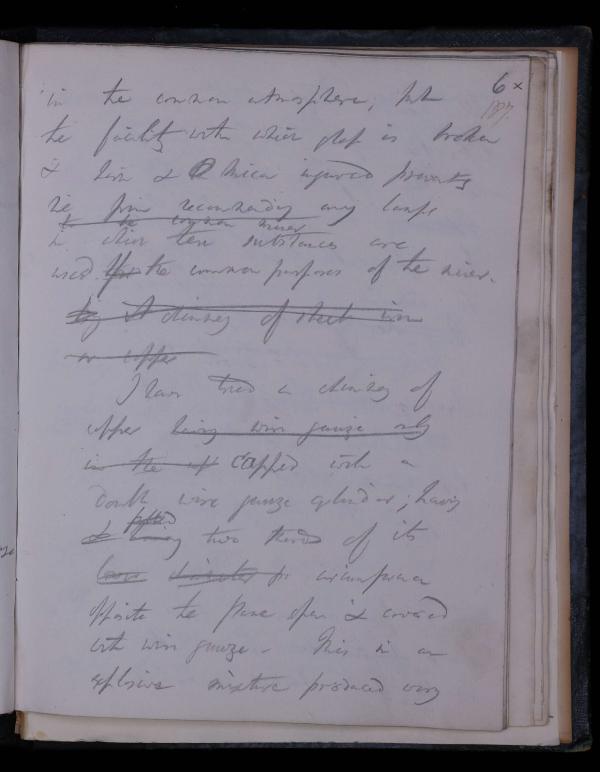 6 x
187.
in the common atmosphere, but
the facility with which glass is broken
& horn & Mica injured prevents
me from recommending any lamps
to the common miner
in which these substances are
used for the common purposes of the miner.
by A chimney of sheet iron
or copper
I have tried a chimney of
copper having wire gauze only
in the capped with a
double wire gauze cylinder; having
& having two thirds of its
lower diameter for circumference
opposite the flame open & covered
with wire gauze - This in an
explosive mixture produced very